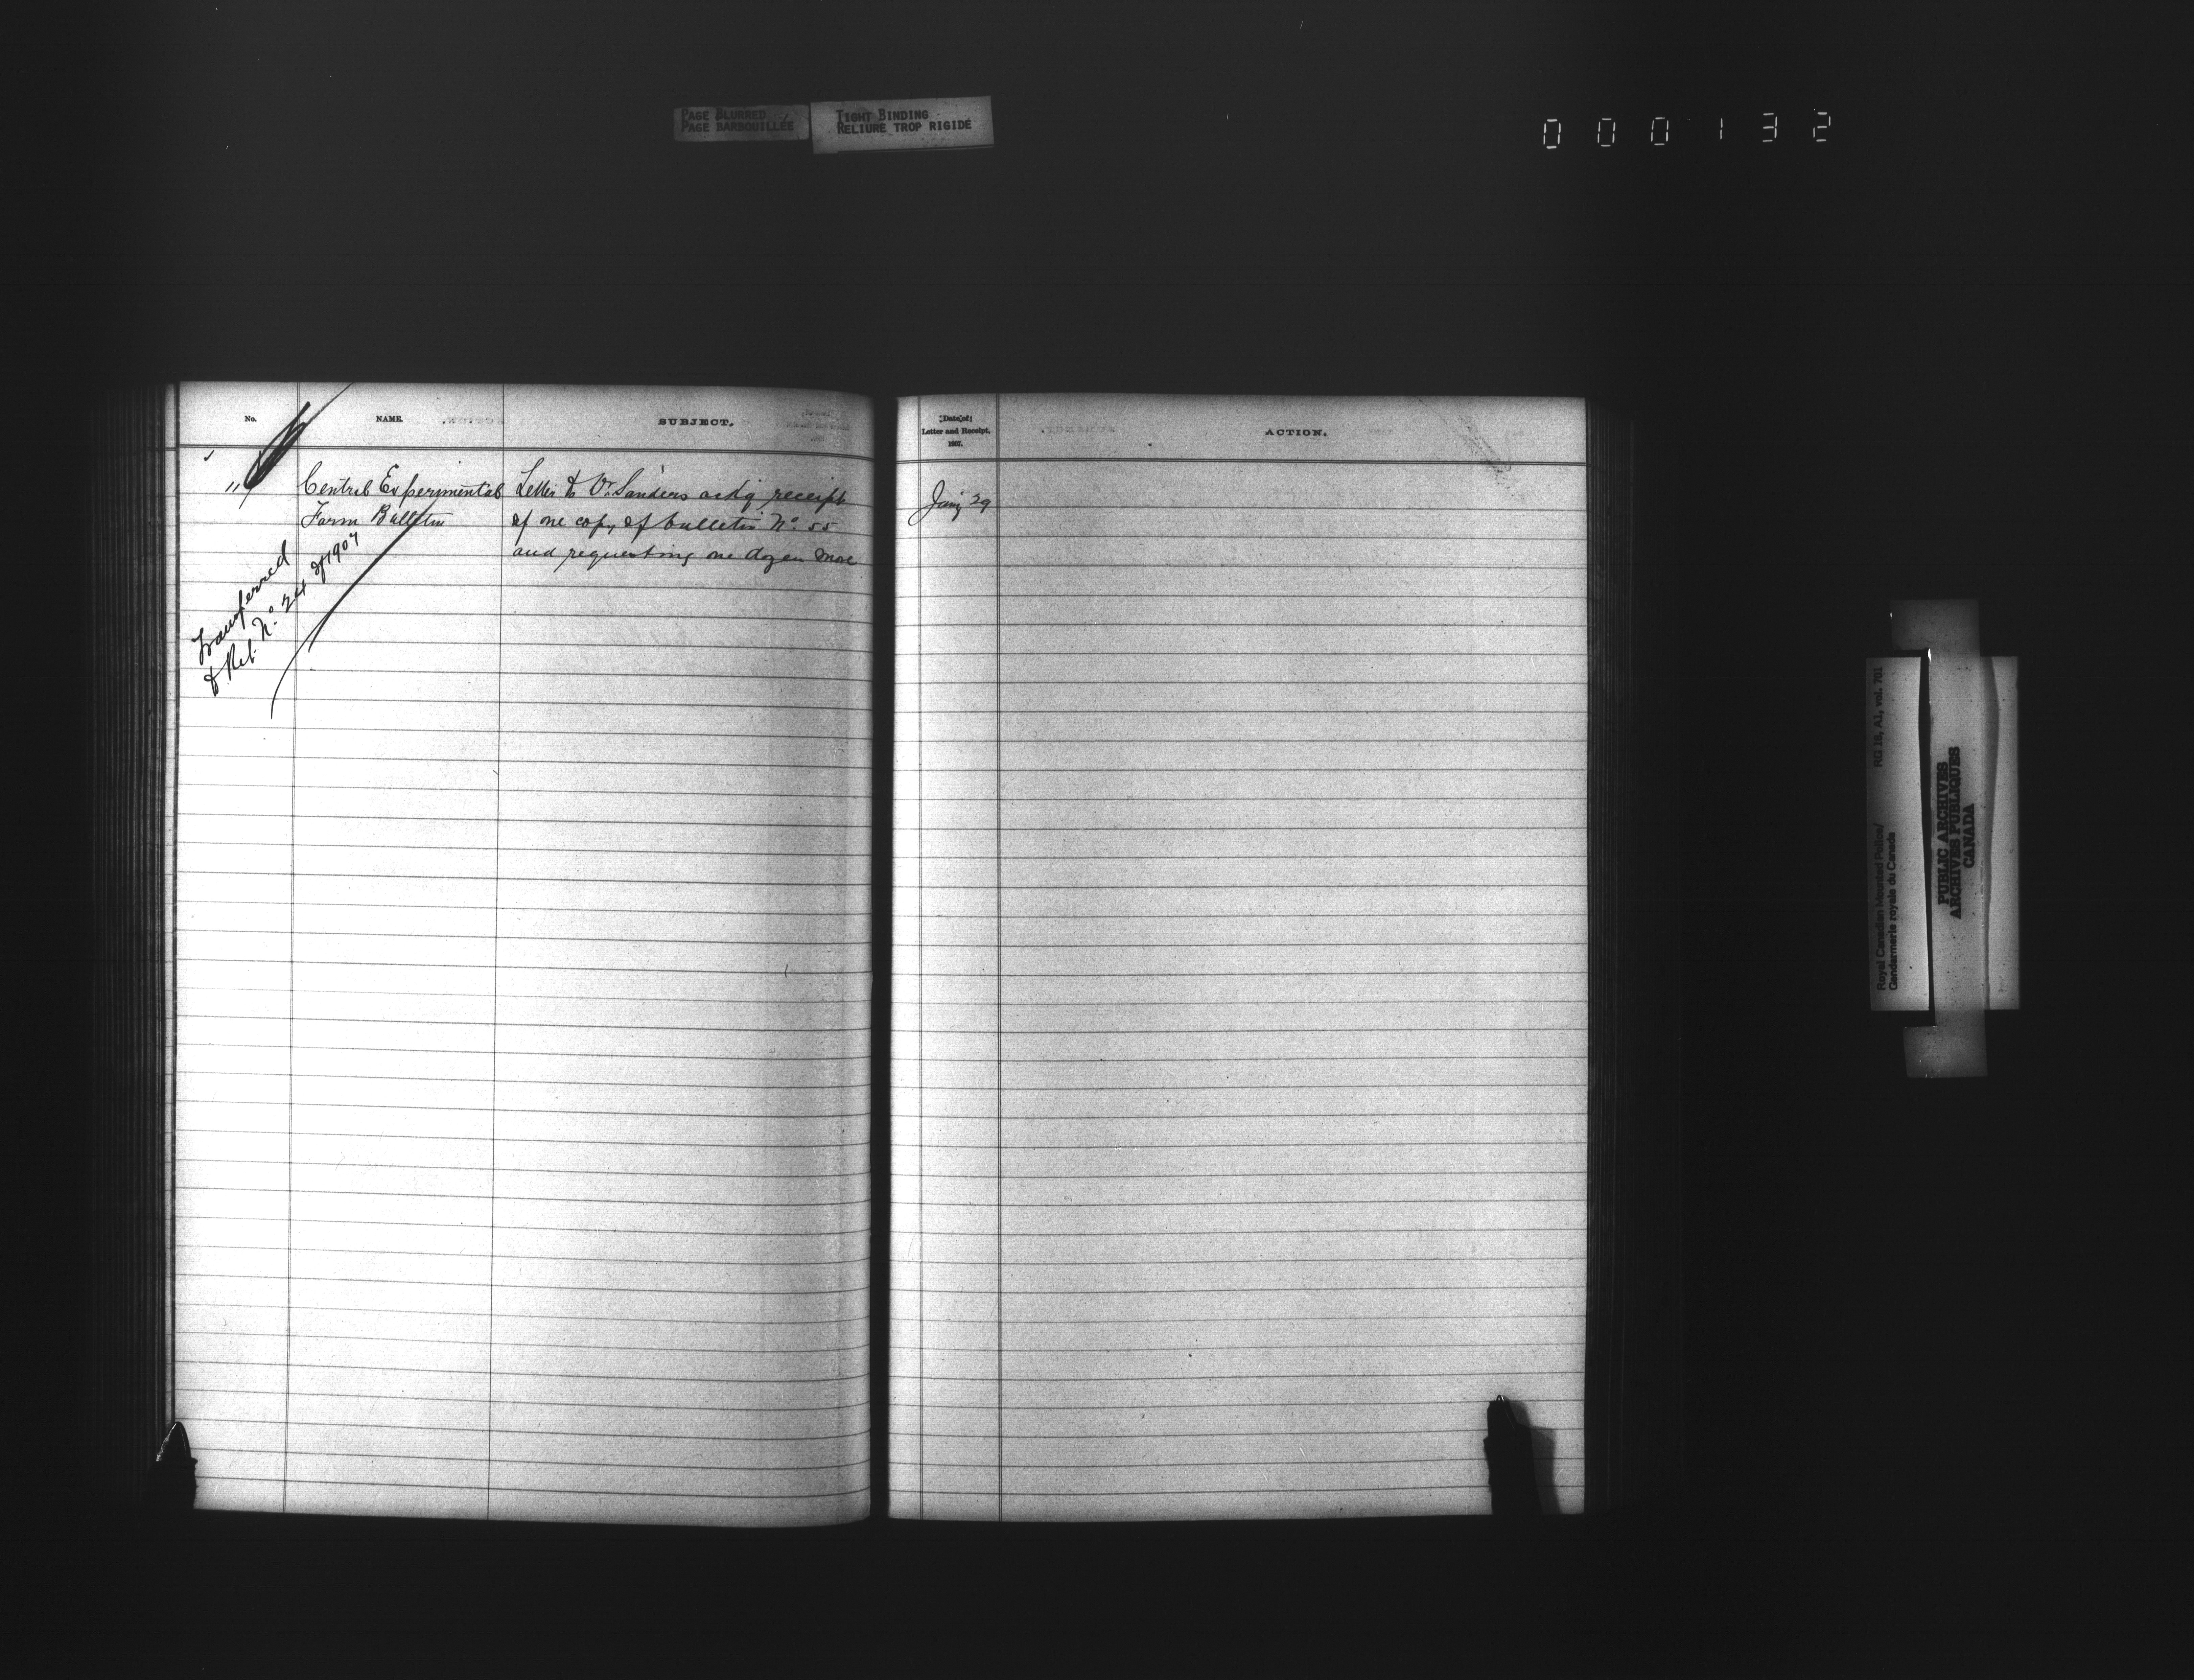 PAGE BLURRED
PAGE BARBOUILLÉE
TIGHT BINDING
RELIURE TROP RIGIDE
000132
No.
NAME.
SUBJECT.
119
Central Experimental
Farm Bulletin
Letter to Dr. Sanders ackg receipt
of one copy of bulletin No. 55
and requesting one dozen more
Transferred
to Ret. No. 24 of 1907
Date of
Letter and Receipt,
1907.
ACTION.
Jany 29
Royal Canadian Mounted Police/
Gendarmerie royale du Canada
RG 18, A1, vol. 701
PUBLIC ARCHIVES
ARCHIVES PUBLIQUES
CANADA